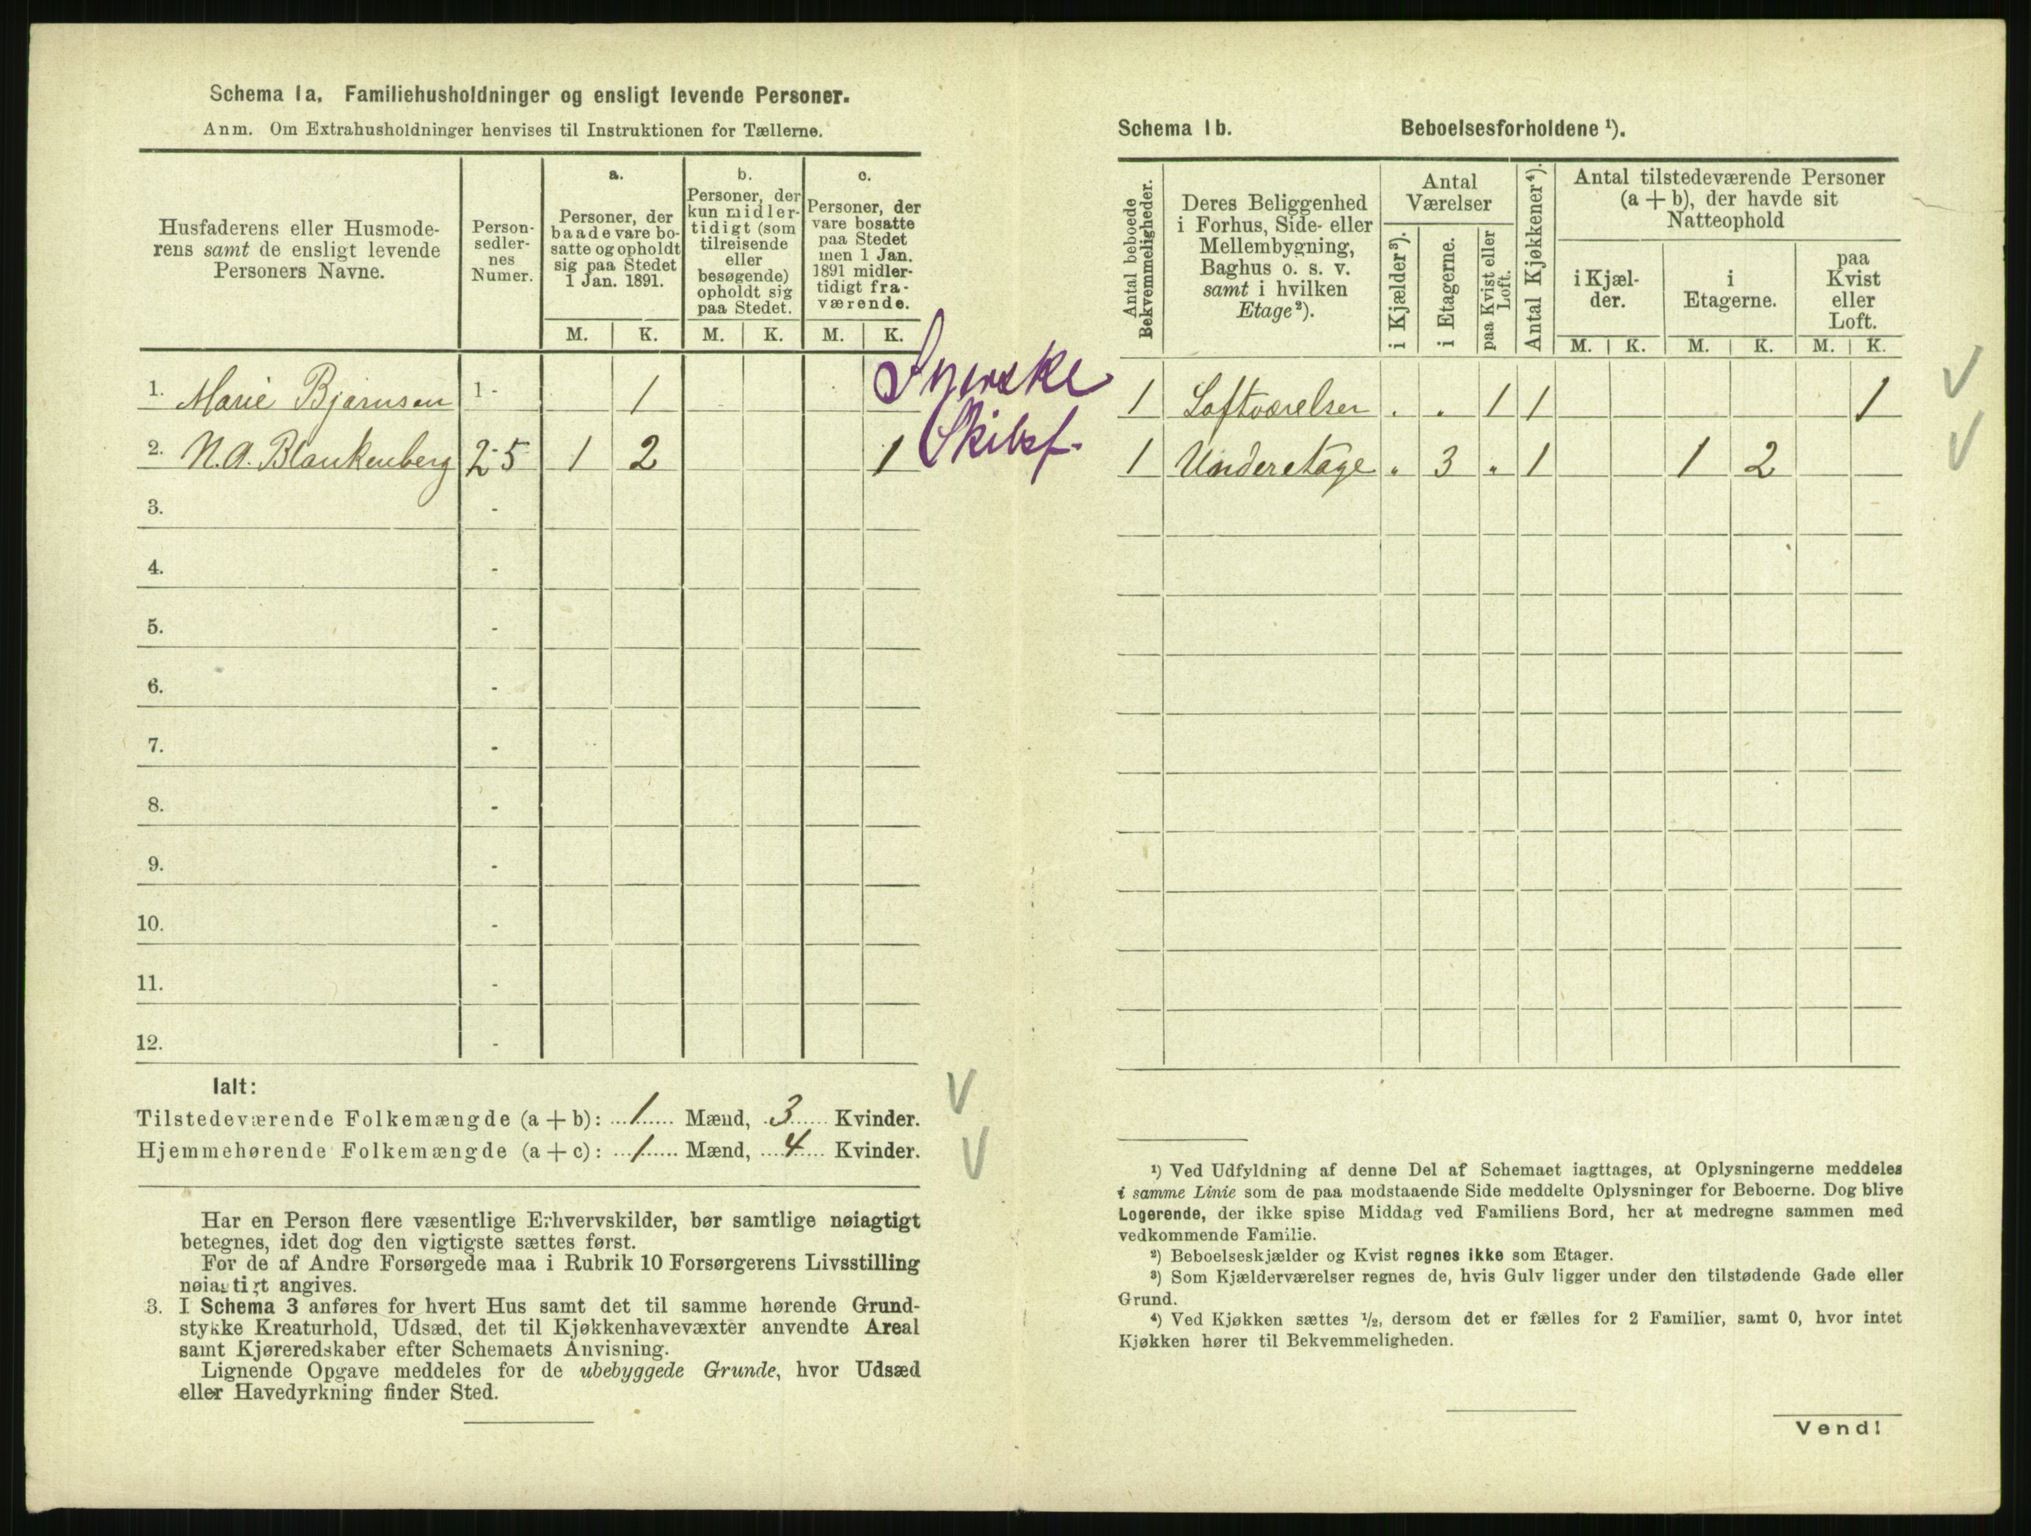 Schema 1a. Familiehusholdninger og ensligt levende Personer.
Anm. Om Extrahusholdninger henvises til Instruktionen for Tællerne.
Husfaderens eller Husmode-
rens samt de ensligt levende
Personers Navne.
Person-
sedler-
nes
Numer.
a.
Personer, der
baade vare bo-
satte og opholdt
sig paa Stedet
1 Jan. 1891.
b.
Personer, der
kun midler-
tidigt (som
tilreisende
eller
besøgende)
opholdt sig
paa Stedet.
c.
Personer, der
vare bosatte
paa Stedet
men 1 Jan.
1891 midler-
tidigt fra-
værende.
M. K. M. K. M. K.
1. Marie Bjørnsen 1 - 1
2. N. A. Blankenberg 2-5 1 2 1
Svenske
Skibsf.
3. -
4. -
5. -
6. -
7. -
8. -
9. -
10. -
11. -
12. -
Ialt:
Tilstedeværende Folkemængde (a + b): 1 Mænd, 3 Kvinder.
Hjemmehørende Folkemængde (a + c): 1 Mænd, 4 Kvinder.
V
V
Har en Person flere væsentlige Erhvervskilder, bør samtlige nøiagtigt
betegnes, idet dog den vigtigste sættes først.
For de af Andre Forsørgede maa i Rubrik 10 Forsørgerens Livsstilling
nøiagtigt angives.
3. I Schema 3 anføres for hvert Hus samt det til samme hørende Grund-
stykke Kreaturhold, Udsæd, det til Kjøkkenhavevæxter anvendte Areal
samt Kjøreredskaber efter Schemaets Anvisning.
Lignende Opgave meddeles for de ubebyggede Grunde, hvor Udsæd
eller Havedyrkning finder Sted.
Schema 1b. Beboelsesforholdene ¹).
Antal beboede
Bekvemmeligheder.
Deres Beliggenhed
i Forhus, Side- eller
Mellembygning,
Baghus o. s. v.
samt i hvilken
Etage ²).
Antal
Værelser
i Kjælder ³).
i Etagerne.
paa Kvist eller
Loft.
Antal Kjøkkener ⁴).
Antal tilstedeværende Personer
(a + b), der havde sit
Natteophold
i Kjæl-
der.
i
Etagerne.
paa
Kvist
eller
Loft.
M. K. M. K. M. K.
1 Loftværelser . . 1 1 1 V
1 Underetage . 3 . 1 1 2 V
¹) Ved Udfyldning af denne Del af Schemaet iagttages, at Oplysningerne meddeles
i samme Linie som de paa modstaaende Side meddelte Oplysninger for Beboerne. Dog blive
Logerende, der ikke spise Middag ved Familiens Bord, her at medregne sammen med
vedkommende Familie.
²) Beboelseskjælder og Kvist regnes ikke som Etager.
³) Som Kjælderværelser regnes de, hvis Gulv ligger under den tilstødende Gade eller
Grund.
⁴) Ved Kjøkken sættes ½, dersom det er fælles for 2 Familier, samt 0, hvor intet
Kjøkken hører til Bekvemmeligheden.
Vend!